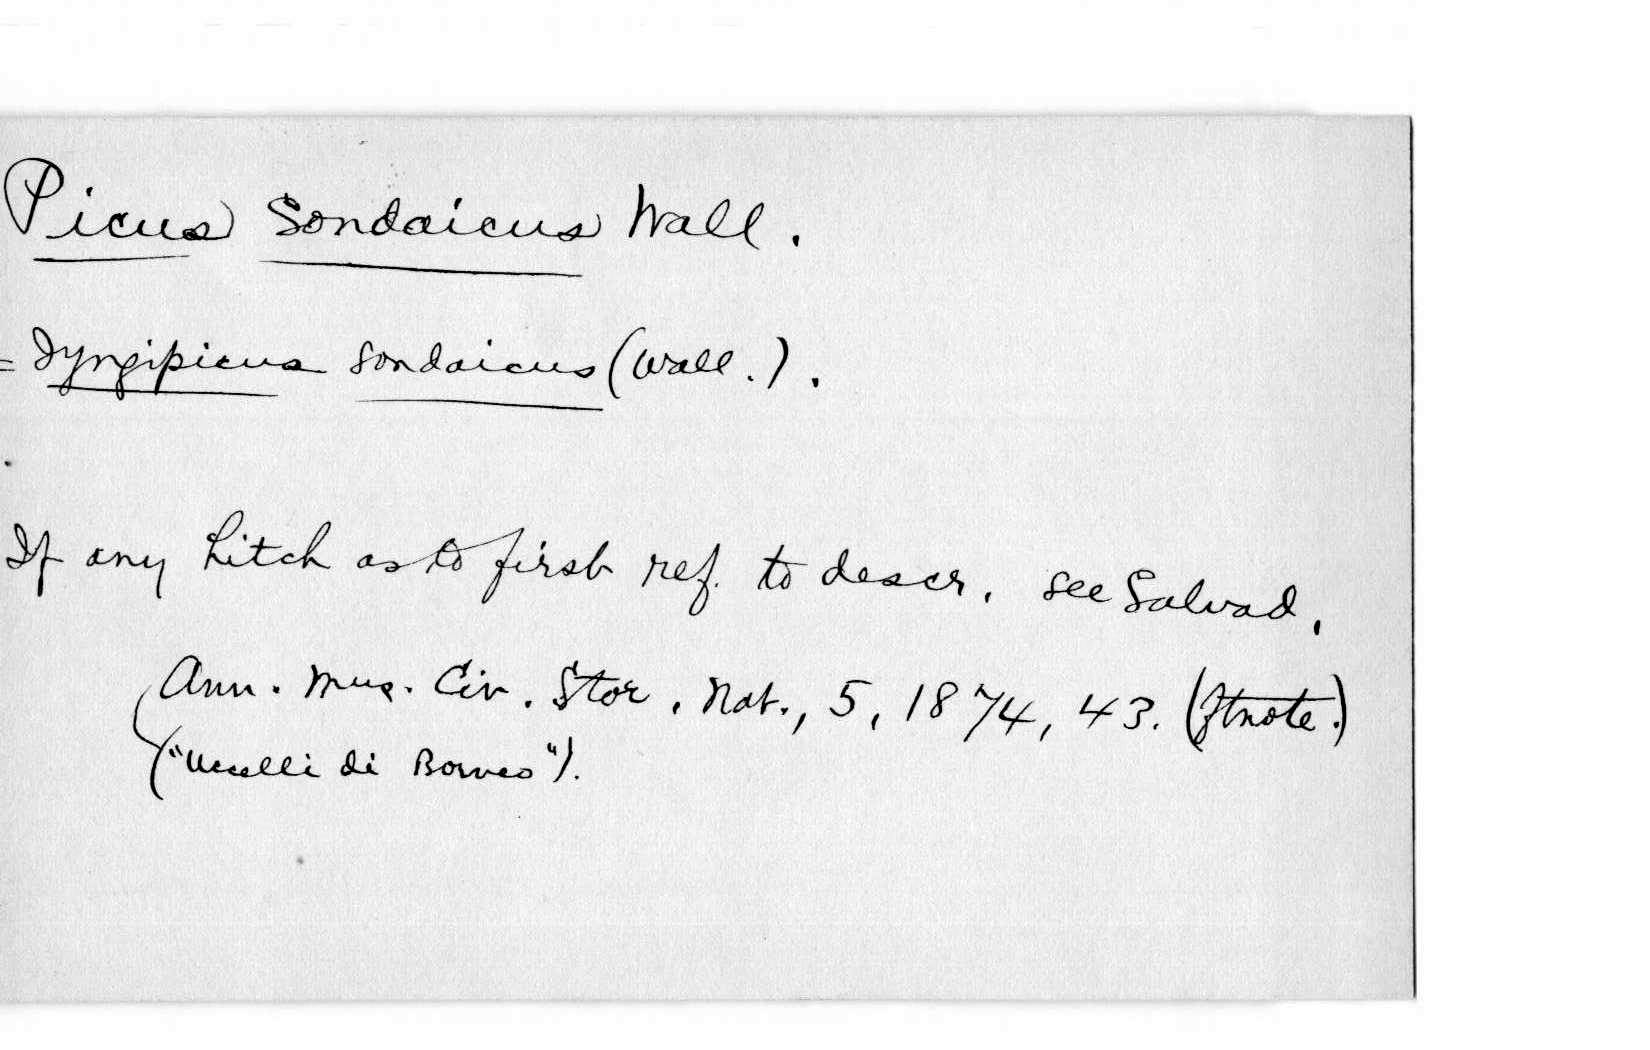 Picus Sondaicus Wall.
= Iyngipicus sondaicus (Wall.).
If any hitch as to first ref. to descr. see Salvad.
Ann. Mus. Civ. Stor. Nat., 5, 1874, 43. (ftnote.)
("Uccelli di Borneo").